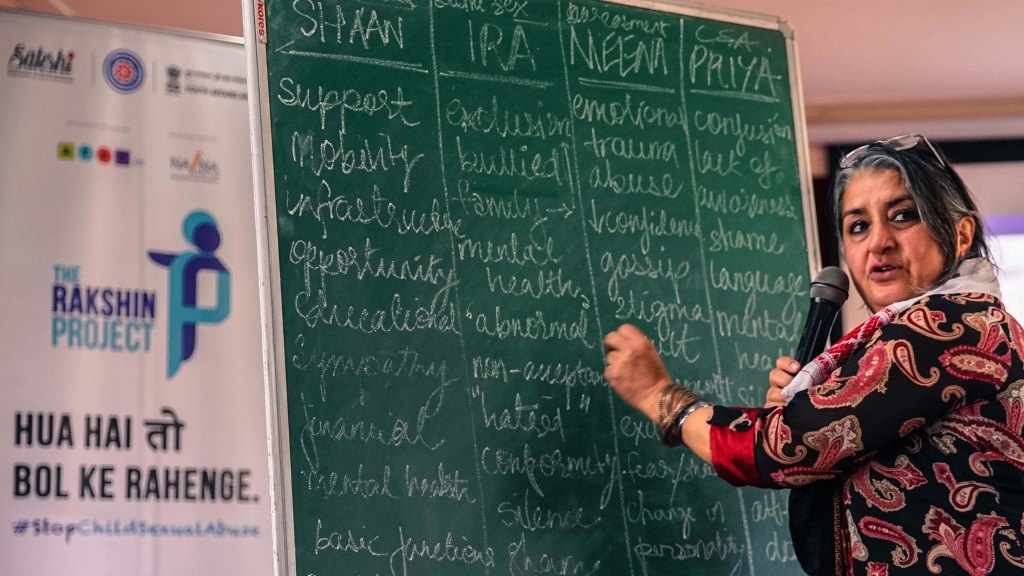 Sakshi
NAINA
THE
RAKSHIN
PROJECT
HUA HAI तो
BOL KE RAHENGE.
#StopChildSexualAbuse
kores
SHAAN
support
Mobility
infrastructure
opportunity
Educational
Sympathy
financial
mental health
basic functions
IRA
exclusion
bullied
family →
mental
health
"abnormal"
non-acceptance
hatred
conformety
silence
harassment
MEENA
emotional
trauma
abuse
confidence
gossip
stigma
fear
change in
personality
CSA
PRIYA
confusion
lack of
awareness
shame
language
mental